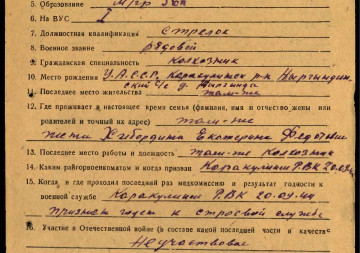 5. Образование Мгр 3 кл
6. На ВУС 1
7. Должностная квалификация стрелок
8. Военное звание рядовой
9. Гражданская специальность колхозник
10. Место рождения У.А.С.С.Р, каракулинск р-н Ныргындин-
11. Последнее место жительства ский с/с д. Ныргында там-же
12. Где проживает в настоящее время семья (фамилия, имя и отчество жены или
родителей и точный их адрес) там-же
Екатерина
13. Последнее место работы и должность там-же колхозник
14. Каким райгорвоенкоматом и когда призван Каракулинск РВК 20.
15. Когда, и где проходил последний раз медкомиссию и результат годности к
военной службе Каракулинск РВК 20.04.44
признан годен к строевой службе
16. Участие в Отечественной войне (в составе какой последней части и в качестве
Не участвовал